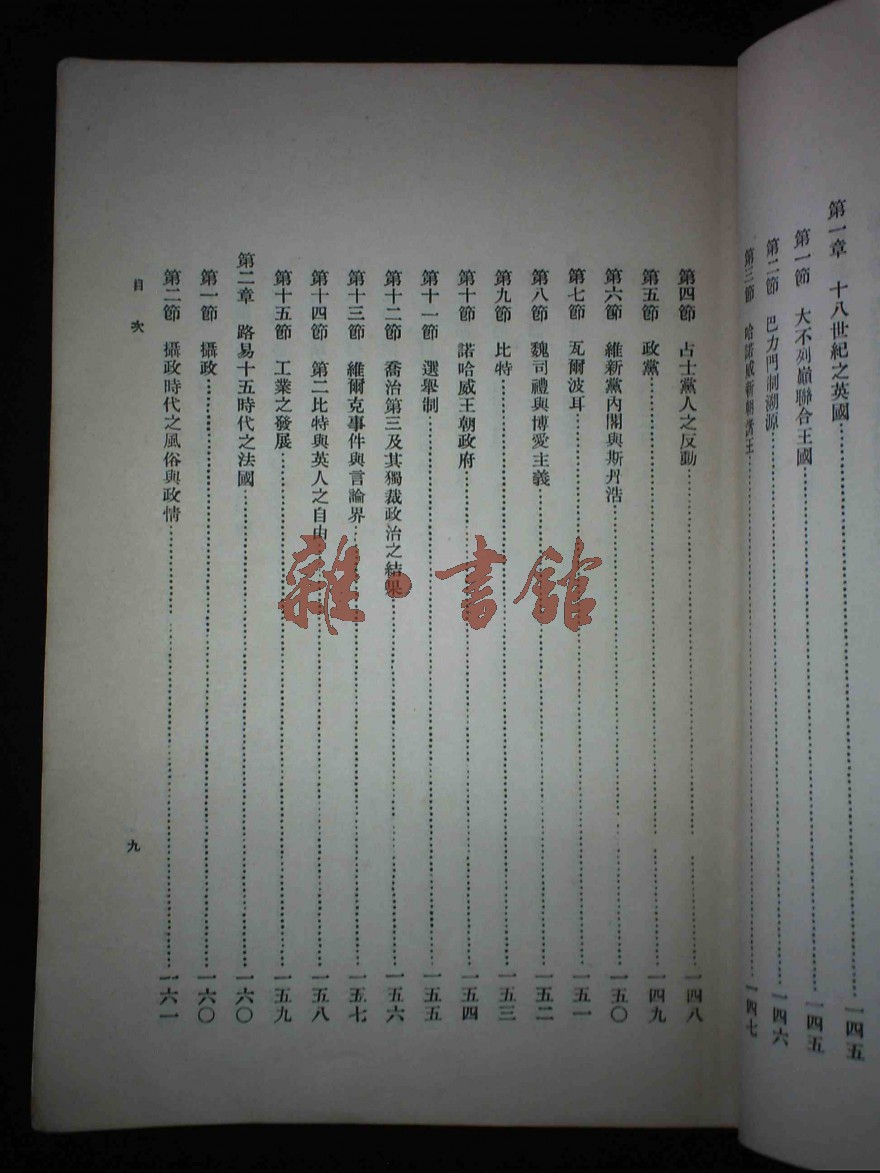 第一章 十八世紀之英國……一四五
第一節 大不列巔聯合王國……一四五
第二節 巴力門制溯源……一四六
第三節 哈諾威新朝諸王……一四七
第四節 占士黨人之反動……一四八
第五節 政黨……一四九
第六節 維新黨內閣與斯丹浩……一五〇
第七節 瓦爾波耳……一五一
第八節 魏司禮與博愛主義……一五二
第九節 比特……一五三
第十節 諾哈威王朝政府……一五四
第十一節 選舉制……一五五
第十二節 喬治第三及其獨裁政治之結果……一五六
第十三節 維爾克事件與言論界……一五七
第十四節 第二比特與英人之自由……一五八
第十五節 工業之發展……一五九
第二章 路易十五時代之法國……一六〇
第一節 攝政……一六〇
第二節 攝政時代之風俗與政情……一六一
目次
九
雜·書館